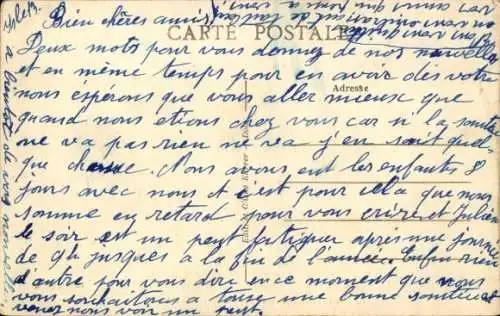 Bien chères amies
CARTE POSTALE
Adresse
Deux mots pour vous donnez de nos nouvelles
et en même temps pour en avoir des votre
nous espérons que vous aller mieuse que
quand nous etions chez vous car si la sante
ne va pas rien ne va j'en sait quel
que chause. Nous avons eut les enfants 8
jours avec nous et c'est pour cela que nous
somme en retard pour vous crire et
le soir est un peut fatiguer apres une journee
de 9h jusques a la fin de l'annee. Enfin rien
d'autre pour vous dire en ce moment que nous
vous souhaitons a tousse une bonne sante et
venez nous voir un peut.
a bientot de vos nouvelles